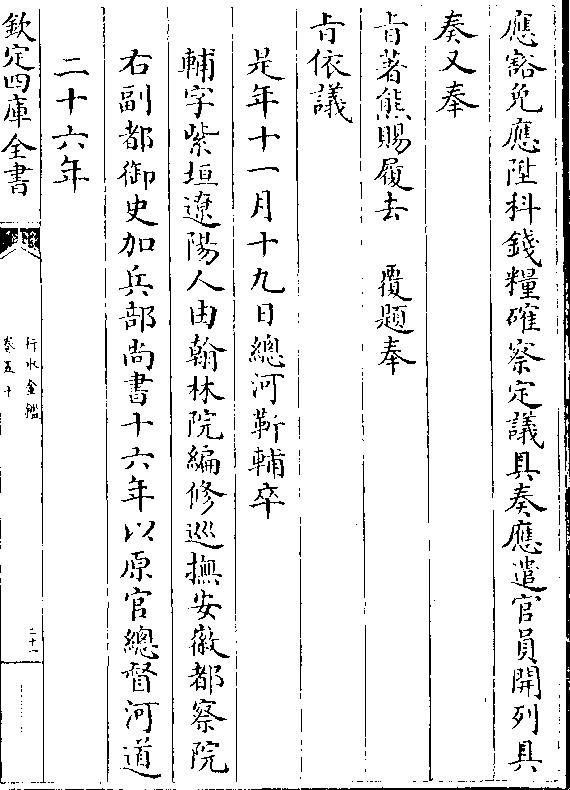 應豁免應陞科錢糧確察定議具奏應遣官員開列具
奏又奉
㫖著熊賜履去　覆題奉
㫖依議
是年十一月十九日總河靳輔卒
輔字紫垣遼陽人由翰林院編修巡撫安徽都察院
右副都御史加兵部尚書十六年以原官總督河道
二十六年
欽定四庫全書
行水金鑑
卷五十
二十一